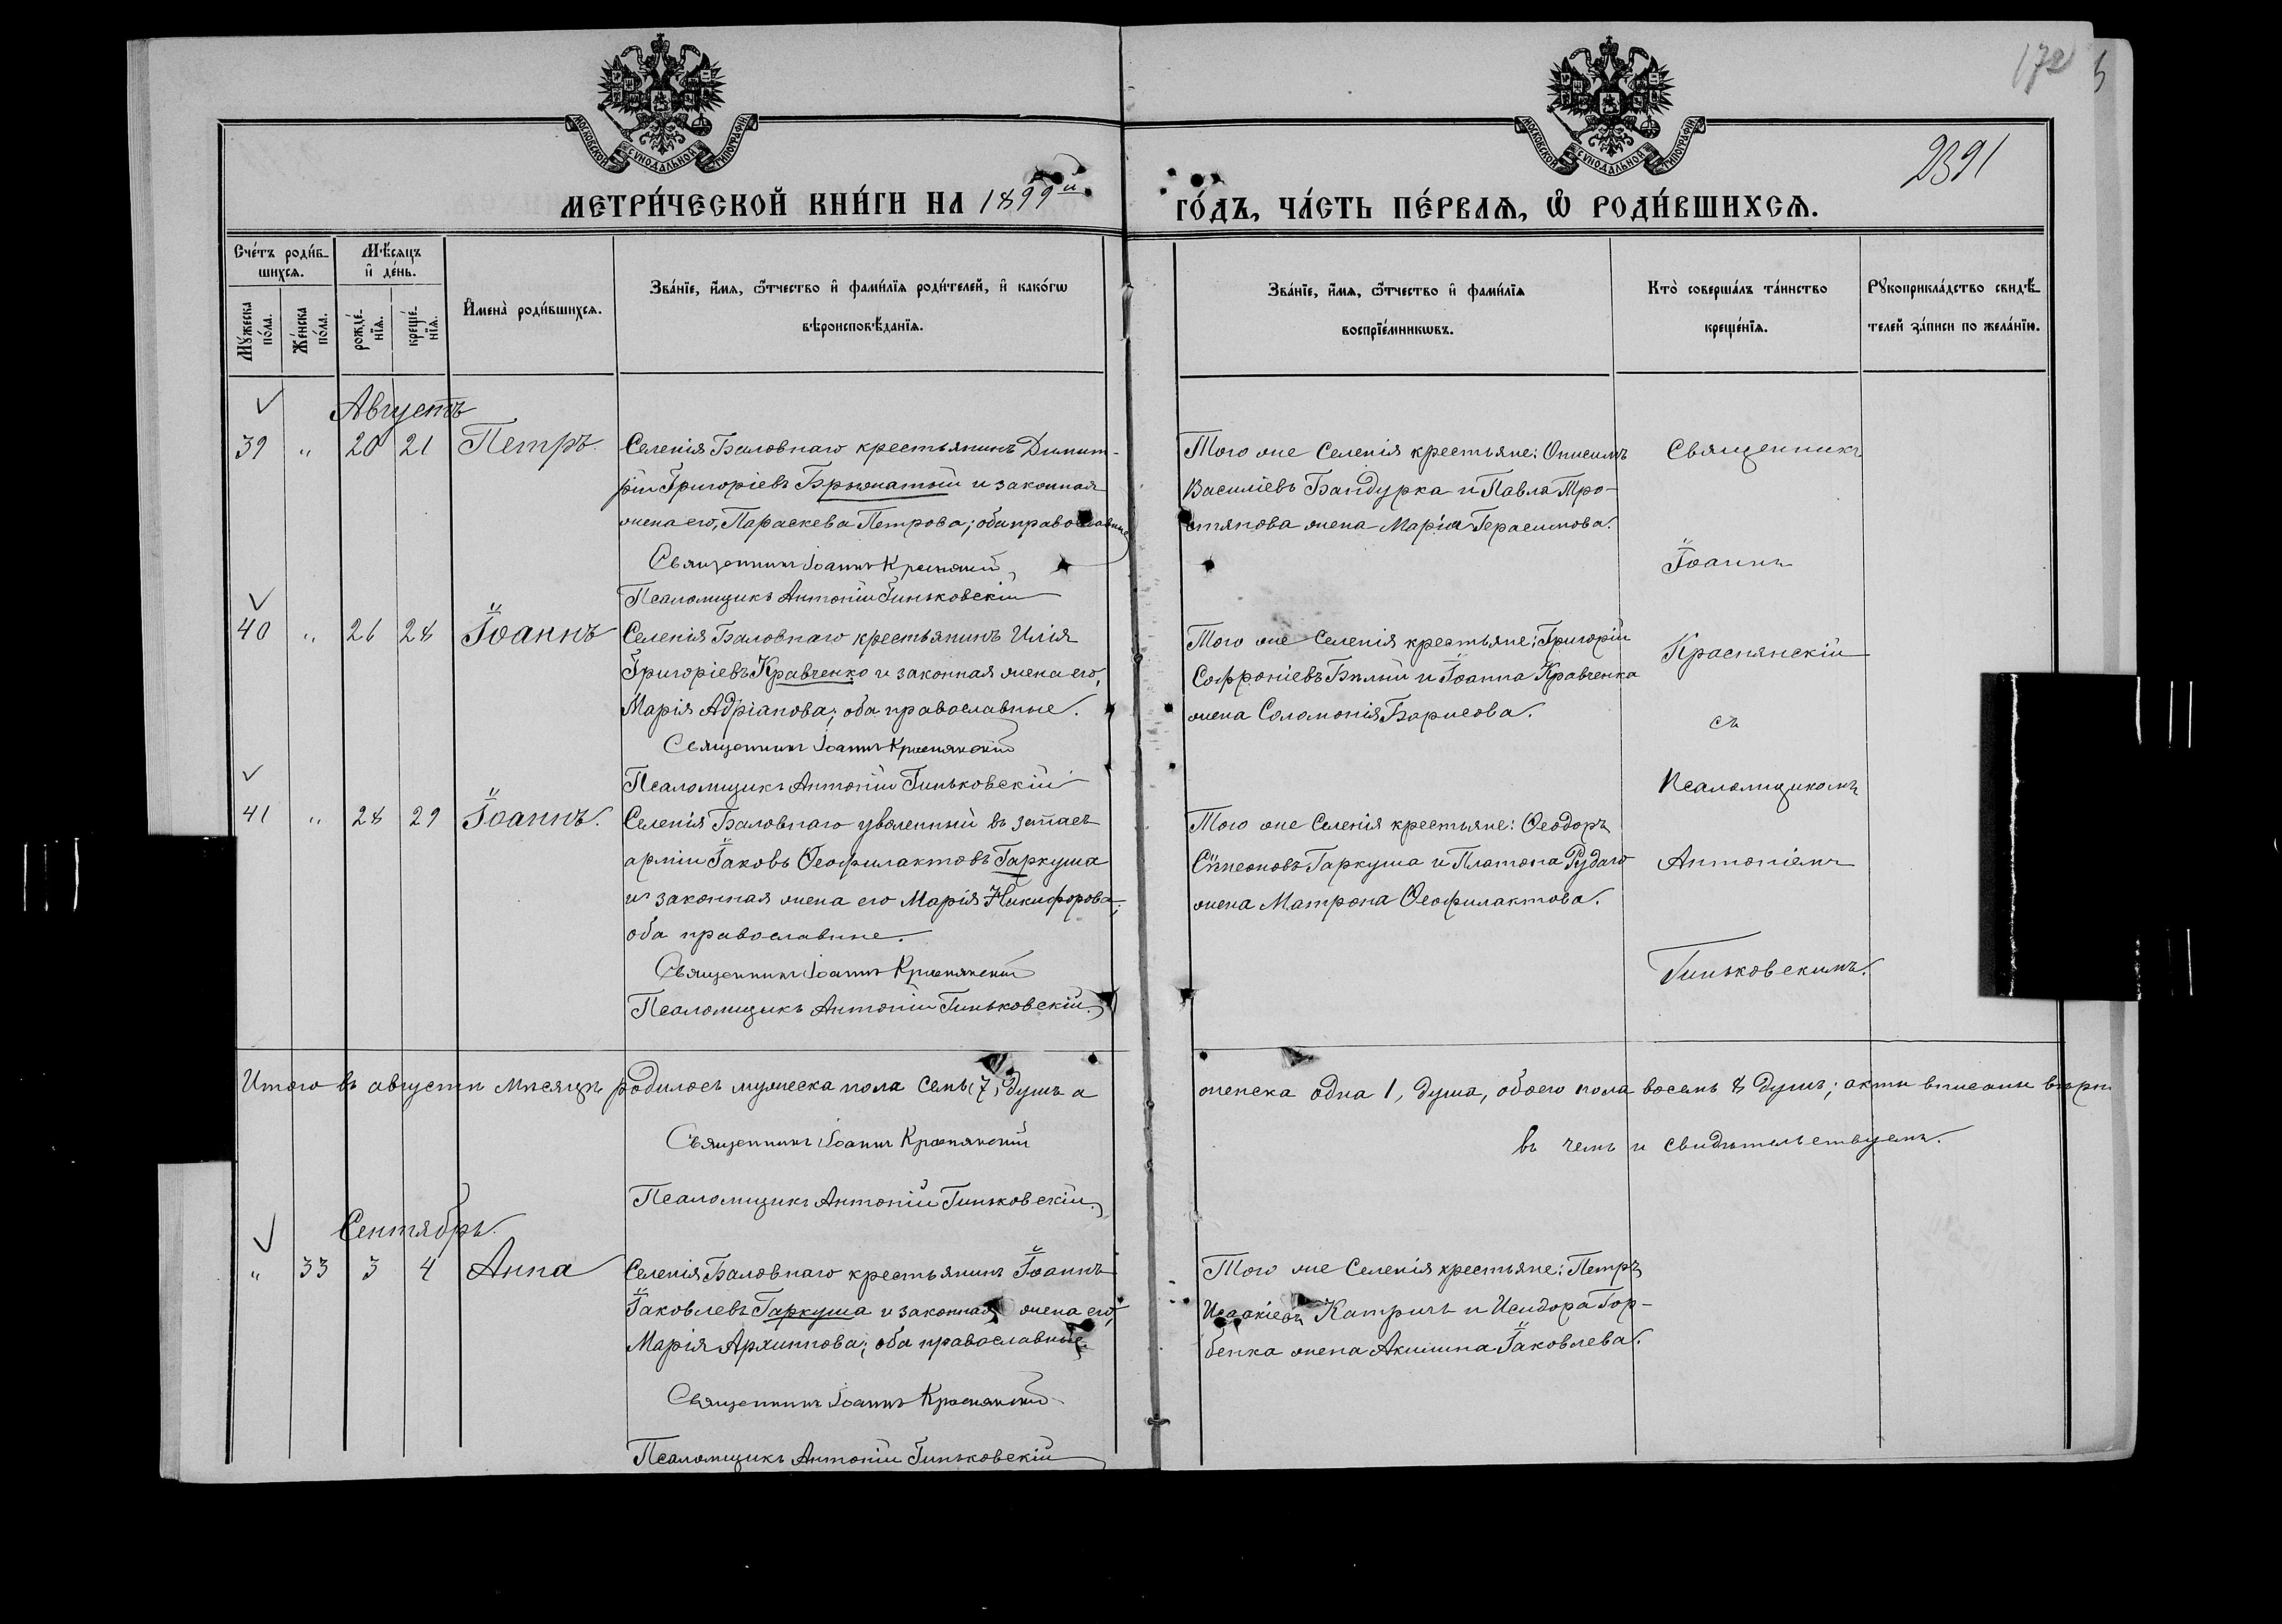 172
2391
МОСКОВСКОЙ СѴНОДАЛЬНОЙ ТИПОГРАФІИ
МОСКОВСКОЙ СѴНОДАЛЬНОЙ ТИПОГРАФІИ
МЕТРИ́ЧЕСКОЙ КНИ́ГИ НА 1899й
ГО́ДЪ, ЧА́СТЬ ПЕ́РВАѦ, Ѽ РОДИ́ВШИХСѦ.
Сче́тъ роди́в-
шихсѧ.
Му́жеска по́ла.
Же́нска по́ла.
Мѣ́сѧцъ
и҆ де́нь.
рожде́-
нїѧ.
креще́-
нїѧ.
И҆мена̀ роди́вшихсѧ.
Зва́нїе, и҆́мѧ, ѻ҆́тчество и҆ фами́лїѧ роди́телей, и҆ како́гѡ
вѣроисповѣ́данїѧ.
Зва́нїе, и҆́мѧ, ѻ҆́тчество и҆ фами́лїѧ
воспрїе́мникѡвъ.
Кто̀ соверша́лъ та́инство
креще́нїѧ.
Рꙋкоприкла́дство свидѣ́-
телей за́писи по жела́нїю.
Августъ
39 " 20 21 Петръ.
Селенія Баловнаго крестьянинъ Димит-
рій Григоріевъ Брюхатый и законная
жена его, Параскева Петрова; оба православные
Священникъ Іоаннъ Краснянскій
Псаломщикъ Антоній Гиньковскій
Того же Селенія крестьяне: Онисимъ
Василіевъ Бандурка и Павла Тро-
стякова жена Марія Герасимова.
40 " 26 28 Іоаннъ
Селенія Баловнаго крестьянинъ Илія
Григоріевъ Кравченко и законная жена его,
Марія Адріанова; оба православные.
Священникъ Іоаннъ Краснянскій
Псаломщикъ Антоній Гиньковскій
Того же Селенія крестьяне: Григорій
Софроніевъ Бѣлый и Іоанна Кравченка
жена Соломонія Борисова.
41 " 28 29 Іоаннъ.
Селенія Баловнаго уволенный въ запасъ
арміи Іаковъ Ѳеофилактовъ Гаркуша
и законная жена его Марія Никифорова;
оба православные.
Священникъ Іоаннъ Краснянскій
Псаломщикъ Антоній Гиньковскій.
Того же Селенія крестьяне: Ѳеодоръ
Сѵмеоновъ Гаркуша и Платона Рудаго
жена Матрона Ѳеофилактова.
Священникъ
Іоаннъ
Краснянскій
съ
Псаломщикомъ
Антоніемъ
Гиньковскимъ.
Итого въ августѣ мѣсяцѣ родилось мужеска пола семь (7) душъ а
женска одна 1, душа, обоего пола восемь 8 душъ; акты вписаны вѣрно
въ чемъ и свидѣтельствуемъ.
Священникъ Іоаннъ Краснянскій
Псаломщикъ Антоній Гиньковскій.
Сентябрь.
" 33 3 4 Анна
Селенія Баловнаго крестьянинъ Іоаннъ
Іаковлевъ Гаркуша и законная жена его,
Марія Архиппова; оба православные.
Священникъ Іоаннъ Краснянскій
Псаломщикъ Антоній Гиньковскій
Того же Селенія крестьяне: Петръ
Исаакіевъ Катричъ и Исидора Гор-
бенка жена Акилина Іаковлева.